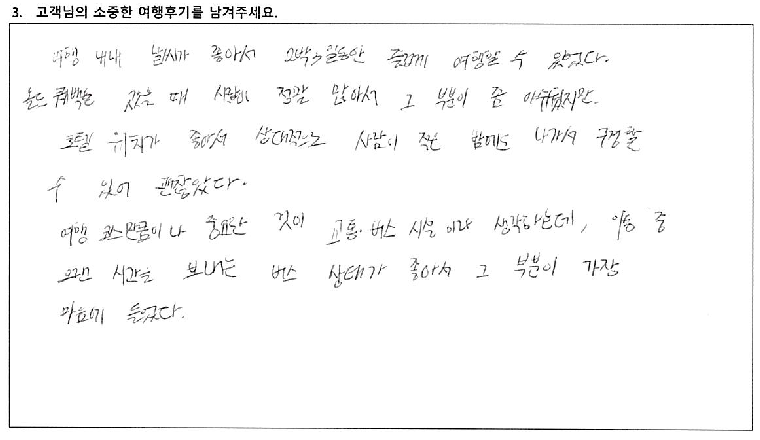 3. 고객님의 소중한 여행후기를 남겨주세요.
여행 내내 날씨가 좋아서 2박3일동안 즐겁게 여행할 수 있었다.
올드 퀘백을 갔을 때 사람이 정말 많아서 그 부분이 좀 아쉬웠지만.
호텔 위치가 좋아서 상대적으로 사람이 적은 밤에도 나가서 구경할
수 있어 괜찮았다.
여행 코스만큼이나 중요한 것이 교통·버스 시설이라 생각하는데, 이동 중
오랜 시간을 보내는 버스 상태가 좋아서 그 부분이 가장
마음에 들었다.